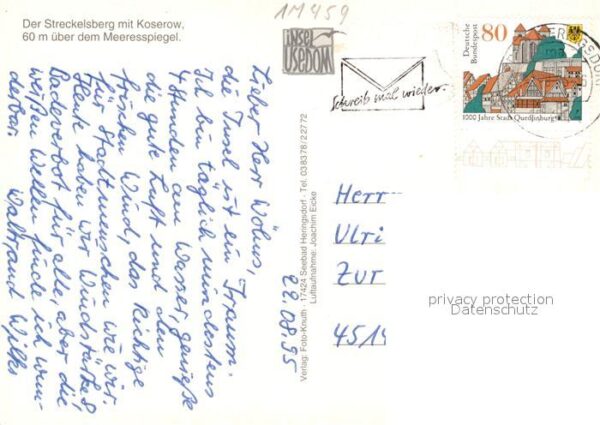 Der Streckelsberg mit Koserow,
60 m über dem Meeresspiegel.
1M459
insel
usedom
Schreib mal wieder.
Deutsche
Bundespost
80
1000 Jahre Stadt Quedlinburg
Lieber Herr Wölms,
die Insel ist ein Traum.
Ich bin täglich mindestens
4 Stunden am Wasser, genieße
die gute Luft und den
frischen Wind, das Richtige
für Stadtmenschen wie wir.
Heute haben wir Windstärke 8,
Badeverbot für alle, aber die
weißen Wellen finde ich wun-
derbar. Waltraud Wilks
22.08.95
Verlag: Foto-Knuth · 17424 Seebad Heringsdorf · Tel. 038378/22772
Luftaufnahme: Joachim Eicke
Herr
Ulri
Zur
4514
privacy protection
Datenschutz